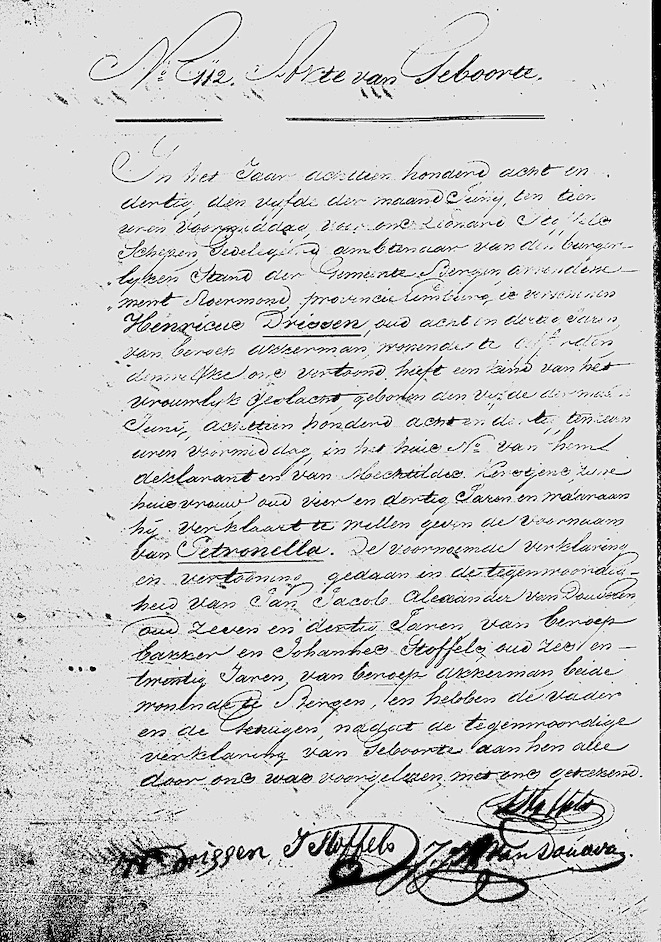 No. 112. Akte van Geboorte.
In het Jaar achttien honderd acht en
dertig, den vyfde der maand Juny, ten tien
uren voormiddag, voor ons Leonard Stoffels
Schepen Gedelegeerd ambtenaar van den burger-
lyken Stand der Gemeente Bergen arrondisse-
ment Roermond, provincie Limburg, is verschenen
Henricus Drissen, oud acht en dertig Jaren
van beroep akkerman, wonende te Afferden
denwelke ons vertoond heeft een kind van het
vrouwlyk Geslacht, geboren den vyfde der maand
Juny, achttien honderd acht en dertig, ten
uren voormiddag, in het huis No. van hem
deklarant en van Mechtildis zyne
huisvrouw oud vier en dertig Jaren en waaraan
hy verklaart te willen geven de voornaam
van Petronella. De voornoemde verklaring
en vertooning gedaan in de tegenwoordig-
heid van Jan Jacob Alexander van Douveren
oud zeven en dertig Jaren van beroep
bakker en Johannes Stoffels oud zes en-
twintig Jaren, van beroep akkerman, beide
wonende te Bergen, en hebben de vader
en de Getuigen, nadat de tegenwoordige
verklaring van Geboorte aan hen alle
door ons was voorgelezen, met ons getekend.
L Stoffels
Hs Drissen J Stoffels J J A Van Douveren.